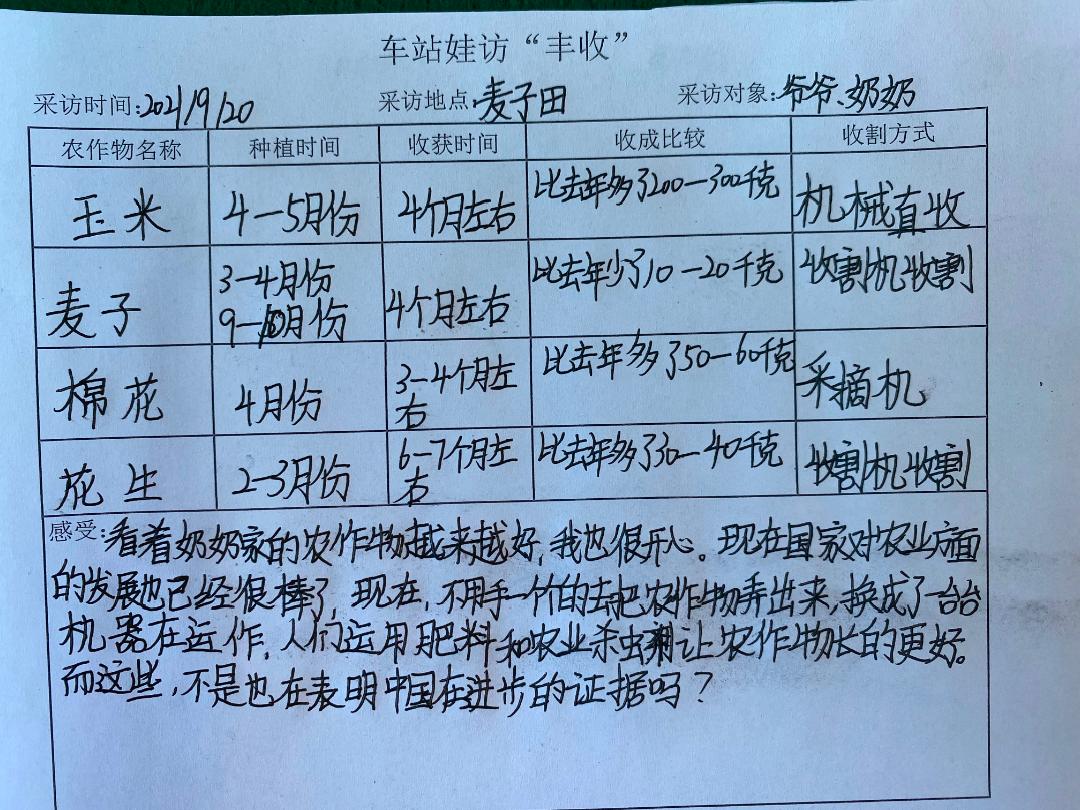 车站娃访“丰收”
采访时间:2021/9/20 采访地点:麦子田 采访对象:爷爷、奶奶
农作物名称 种植时间 收获时间 收成比较 收割方式
玉米 4—5月份 4个月左右 比去年多了200—300千克 机械直收
麦子 3—4月份 9—10月份 4个月左右 比去年少了10—20千克 收割机收割
棉花 4月份 3—4个月左右 比去年多了50—60千克 采摘机
花生 2-3月份 6-7个月左右 比去年多了30—40千克 收割机收割
感受:看着奶奶家的农作物越来越好,我也很开心。现在国家对农业方面
的发展也已经很棒了,现在,不用手一个个的去把农作物弄出来,换成了一台台
机器在运作,人们运用肥料和农业杀虫剂让农作物长的更好。
而这些,不是也在表明中国在进步的证据吗?